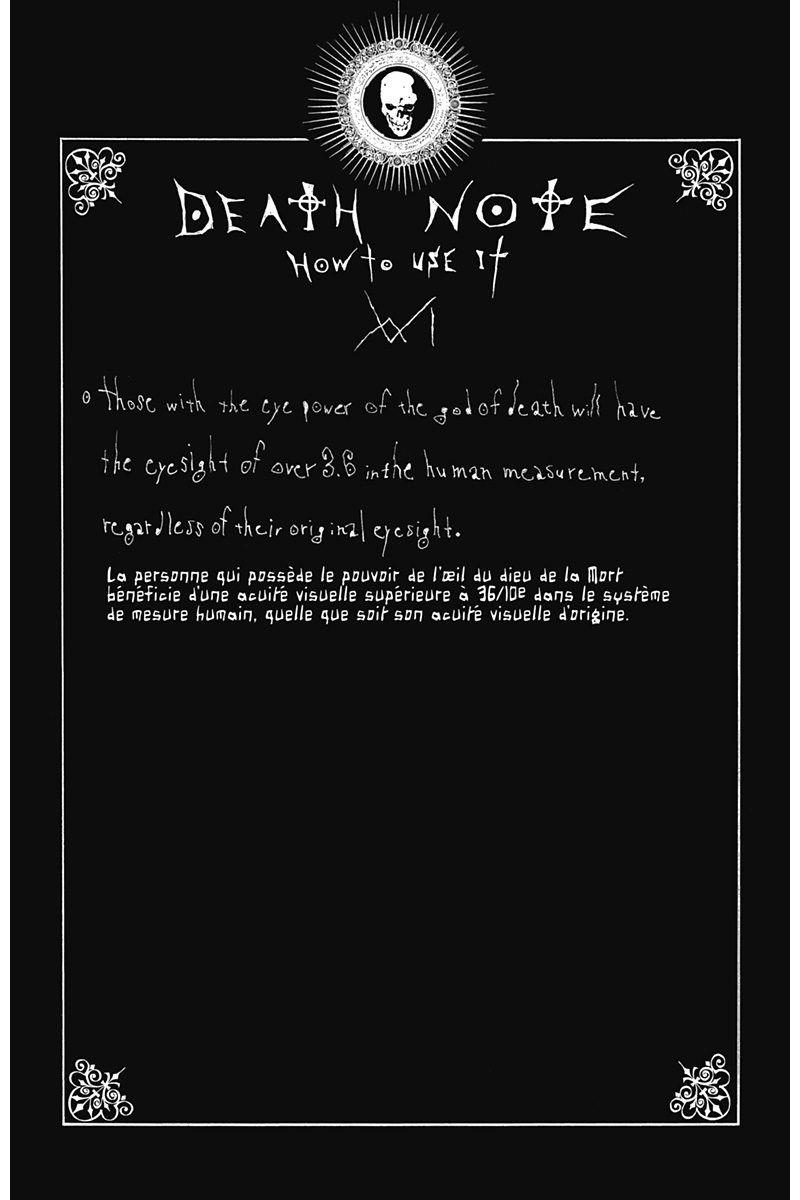 DEATH NOTE
HOW TO USE IT
XVI
those with the eye power of the god of death will have
the eyesight of over 3.6 in the human measurement,
regardless of their original eyesight.
La personne qui possède le pouvoir de l'œil du dieu de la Mort
bénéficie d'une acuité visuelle supérieure à 36/10e dans le système
de mesure humain, quelle que soit son acuité visuelle d'origine.